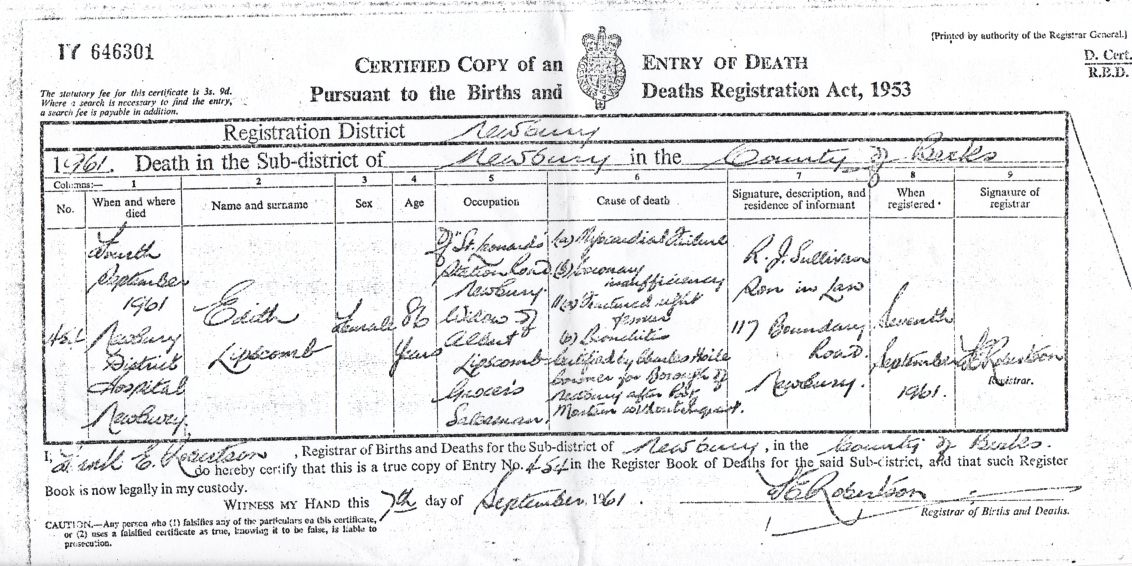 IY 646301
[Printed by authority of the Registrar General.]
CERTIFIED COPY of an ENTRY OF DEATH
D. Cert.
R.B.D.
Pursuant to the Births and Deaths Registration Act, 1953
The statutory fee for this certificate is 3s. 9d.
Where a search is necessary to find the entry,
a search fee is payable in addition.
Registration District Newbury
1961. Death in the Sub-district of Newbury in the County of Berks
Columns:— 1 2 3 4 5 6 7 8 9
No.
When and where died
Name and surname
Sex
Age
Occupation
Cause of death
Signature, description, and residence of informant
When registered
Signature of registrar
454
Fourth
September
1961
Newbury
District
Hospital
Newbury
Edith
Lipscomb
Female
86
years
Of "St. Leonards"
Station Road
Newbury.
Widow of
Albert
Lipscomb
Grocer's
Salesman.
1(a) Myocardial Failure
(b) Coronary
insufficiency
11(a) Fractured right
femur
(b) Bronchitis
Certified by Charles Hoile
Coroner for Borough of
Newbury after Post
Mortem without Inquest.
R. J. Sullivan
Son in Law
117 Boundary
Road
Newbury.
Seventh
September
1961.
E Robertson
Registrar.
I, E. Robertson, Registrar of Births and Deaths for the Sub-district of Newbury, in the County of Berks.
do hereby certify that this is a true copy of Entry No. 454 in the Register Book of Deaths for the said Sub-district, and that such Register
Book is now legally in my custody.
WITNESS MY HAND this 7th day of September, 1961.
E Robertson
Registrar of Births and Deaths.
CAUTION.—Any person who (1) falsifies any of the particulars on this certificate,
or (2) uses a falsified certificate as true, knowing it to be false, is liable to
prosecution.